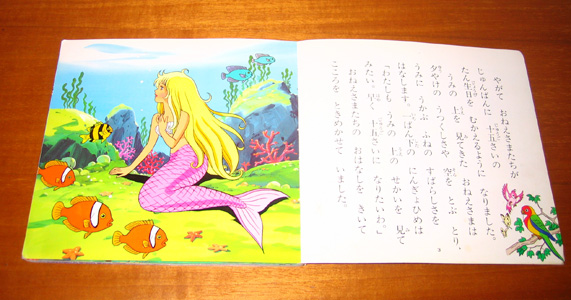 やがて　おねえさまたちが
じゅんばんに　十五さいの
たん生日を　むかえるように　なりました。
うみの　上を　見てきた　おねえさまは
夕やけの　うつくしさや　空を　とぶ　とり、
うみに　うかぶ　ふねの　すばらしさを
はなします。一ばん下の　にんぎょひめは
「わたしも　うみの　上の　せかいを　見て
みたい。早く　十五さいに　なりたいわ。」
おねえさまたちの　おはなしを　きいて
こころを　ときめかせて　いました。